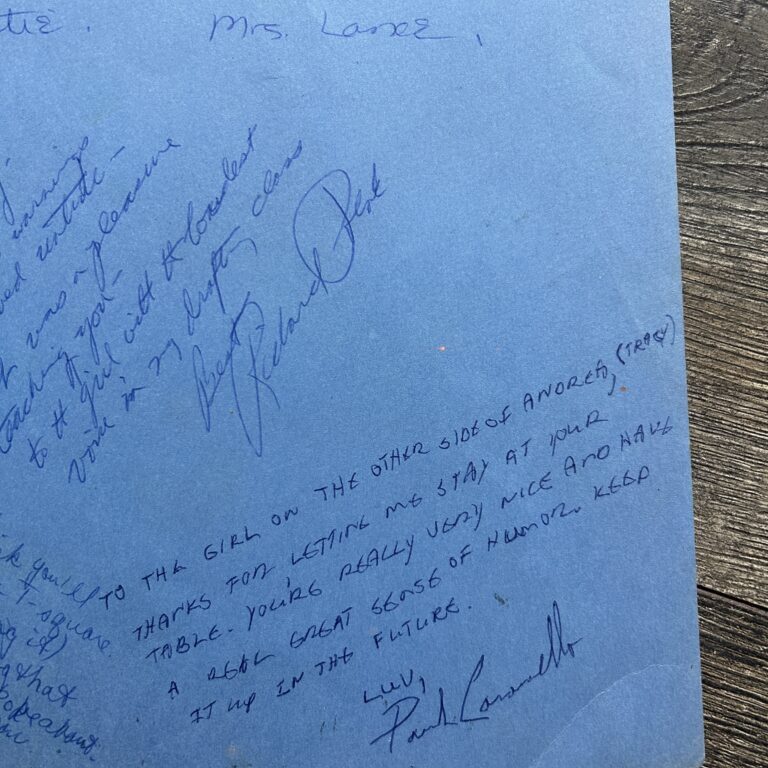 Mrs. Lance,
warnings
was a pleasure
teaching you -
to th girl with th loudest
voice in my drafting class
Best,
Richard
TO THE GIRL ON THE OTHER SIDE OF ANDREA, (TRACY)
THANKS FOR LETTING ME STAY AT YOUR
TABLE. YOU'RE REALLY VERY NICE AND HAVE
A REAL GREAT SENSE OF HUMOR. KEEP
IT UP IN THE FUTURE.
LUV,
Paul
you'll
T-square.
that